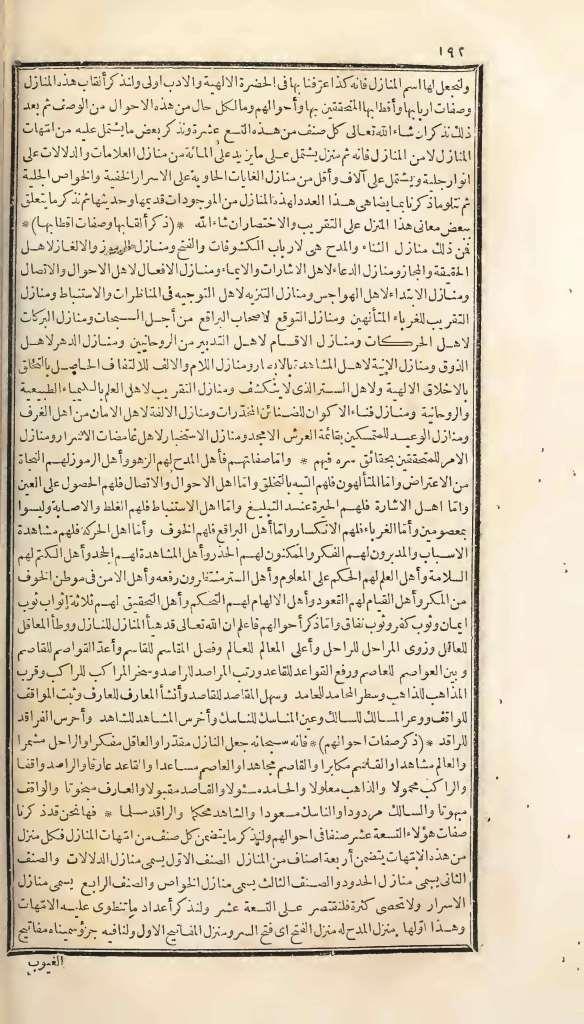 ١٩٢
ولنجعل لها اسم المنازل فانه كذا عرّفنا بها فى الحضرة الالهية والادب اولى ولنذكر ألقاب هذه المنازل
وصفات اربابها وأقطابها المتحققين بها وأحوالهم وما لكل حال من هذه الاحوال من الوصف ثم بعد
ذلك نذكر ان شاء الله تعالى كل صنف من هذه التسع عشرة ونذكر بعض ما يشتمل عليه من امّهات
المنازل لا من المنازل فانه ثم منزل يشتمل على ما يزيد على المائة من منازل العلامات والدلالات على
انوار جلية ويشتمل على آلاف وأقل من منازل الغايات الحاوية على الاسرار الخفية والخواص الجلية
ثم نتلو ماذكرناه بما يضاهى هذا العدد لهذه المنازل من الموجودات قديمها وحديثها ثم نذكر ما يتعلق
ببعض معانى هذا المنزل على التقريب والاختصار ان شاء الله * (ذكر ألقابها وصفات اقطابها) *
فمن ذلك منازل الثناء والمدح هى لارباب الكشوفات والفتح ومنازل الرموز والالغاز لاهل
الحقيقة والمجاز ومنازل الدعاء لاهل الاشارات والايماء ومنازل الافعال لاهل الاحوال والاتصال
ومنازل الابتداء لاهل الهواجس ومنازل التنزيه لاهل التوجيه فى المناظرات والاستنباط ومنازل
التقريب للغرباء المتألهين ومنازل التوقع لاصحاب البراقع من أجل السبحات ومنازل البركات
لاهل الحركات ومنازل الاقسام لاهل التدبير من الروحانيين ومنازل الدهر لاهل
الذوق ومنازل الانية لاهل المشاهدة بالابصار ومنازل اللام والالف للالتفاف الحاصل بالتخلق
بالاخلاق الالهية ولاهل السر الذى لا ينكشف ومنازل التقرير لاهل العلم بالكيمياء الطبيعية
والروحانية ومنازل فناء الاكوان للضنائن المخدّرات ومنازل الالفة لاهل الامان من اهل الغرف
ومنازل الوعيد للمتمسكين بقائمة العرش الامجد ومنازل الاستخبار لاهل غامضات الاسرار ومنازل
الامر للمتحققين بحقائق سره فيهم * وامّا صفاتهم فأهل المدح لهم الزهو وأهل الرموز لهم النجاة
من الاعتراض وامّا المتألهون فلهم التيه بالتخلق وامّا اهل الاحوال والاتصال فلهم الحصول على العين
وامّا اهل الاشارة فلهم الحيرة عند التبليغ وامّا اهل الاستنباط فلهم الغلط والاصابة وليسوا
بمعصومين وأمّا الغرباء فلهم الانكسار وامّا أهل البراقع فلهم الخوف وأمّا اهل الحركة فلهم مشاهدة
الاسباب والمدبرون لهم الفكر والممكنون لهم الحذر وأهل المشاهدة لهم الجحد وأهل الكتم لهم
السلامة وأهل العلم لهم الحكم على المعلوم وأهل الستر منتظرون رفعه وأهل الامن فى موطن الخوف
من المكر وأهل القيام لهم القعود وأهل الالهام لهم التحكم وأهل التحقيق لهم ثلاثة اثواب ثوب
ايمان وثوب كفر وثوب نفاق وامّا ذكر أحوالهم فاعلم ان الله تعالى قد هيأ المنازل للنازل ووطأ المعاقل
للعاقل وزوى المراحل للراحل وأعلى المعالم للعالم وفصل المقاسم للقاسم وأعدّ القواصم للقاصم
وبين العواصم للعاصم ورفع القواعد للقاعد ورتب المراصد للراصد وسخر المراكب للراكب وقرب
المذاهب للذاهب وسطر المحامد للحامد وسهل المقاصد للقاصد وأنشأ المعارف للعارف وثبت المواقف
للواقف ووعر المسالك للسالك وعين المناسك للناسك وأخرس المشاهد للشاهد وأحرس الفراقد
للراقد * (ذكر صفات احوالهم) * فانه سبحانه جعل النازل مقدّرا والعاقل مفكرا والراحل مشمرا
والعالم مشاهدا والقاسم مكابرا والقاصم مجاهدا والعاصم مساعدا والقاعد عارفا والراصد واقفا
والراكب محمولا والذاهب معلولا والحامد مسئولا والقاصد مقبولا والعارف مبخوتا والواقف
مبهوتا والسالك مردودا والناسك مسعودا والشاهد محكما والراقد مسلما * فها نحن قد ذكرنا
صفات هؤلاء التسعة عشر صنفا فى احوالهم ولنذكر ما يتضمن كل صنف من امّهات المنازل فكل منزل
من هذه الامّهات يتضمن أربعة اصناف من المنازل الصنف الاول يسمى منازل الدلالات والصنف
الثانى يسمى منازل الحدود والصنف الثالث يسمى منازل الخواص والصنف الرابع يسمى منازل
الاسرار ولا تحصى كثرة فلنقتصر على التسعة عشر ولنذكر أعداد ما تنطوى عليه الامّهات
وهذا اوّلها منزل المدح له منزل الفتح اى فتح السر ومنزل المفاتيح الاول ولنا فيه جزؤ سميناه مفاتيح
الغيوب